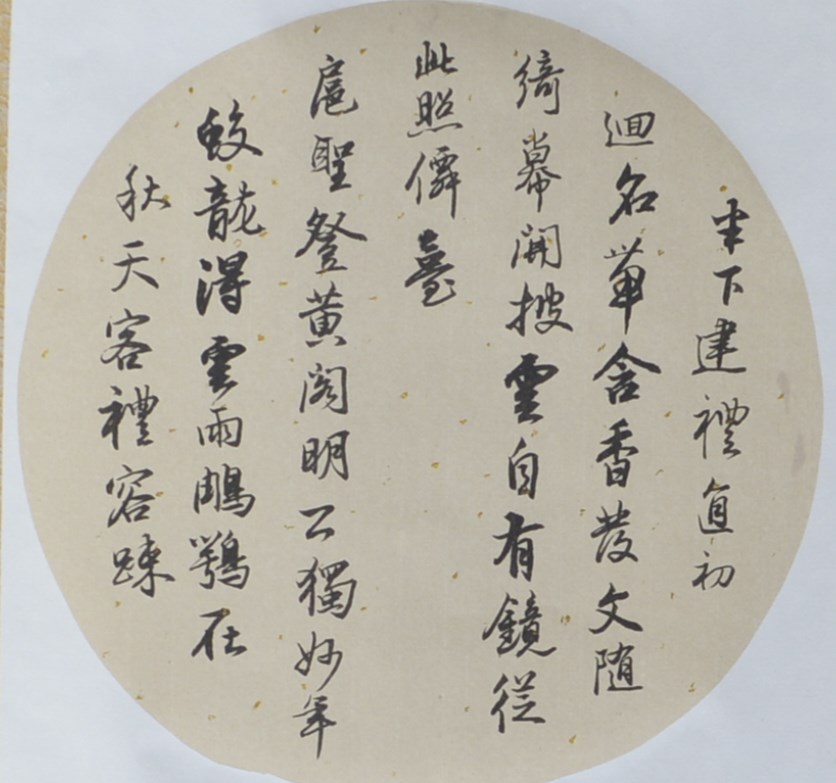 下建禮直初
迴名草含香發文隨
綺幕開披雲自有鏡從
此照僊臺
扈聖登黄閣明公獨妙年
蛟龍得雲雨鵰鶚在
秋天客禮容踈